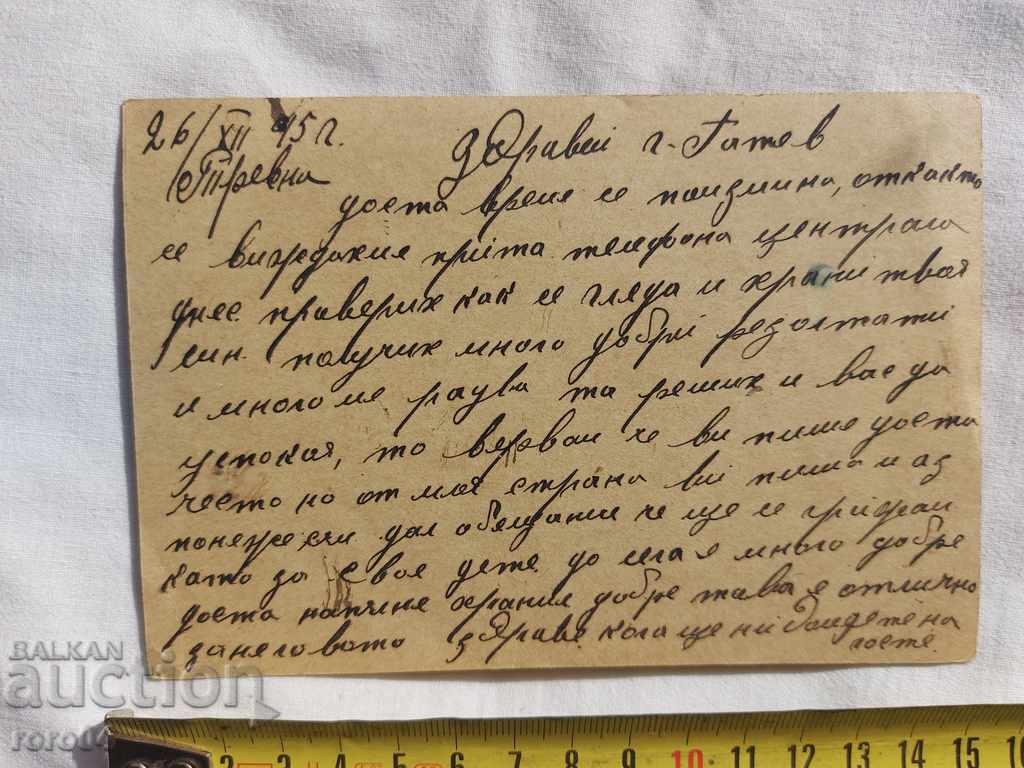 26/XII 45 г.
Тревна
Здравей г. Гатев
доста време се поизмина, откакто
се видяхме при та телефона централа
днес проверих как се гледа и храни твоя
син. получих много добри резолтати
и много ме радва та реших и вас да
успокоя, то вервам че ви пише доста
често но от моя страна ви пиша и аз
понеже съм дал обещание че ще се грижа
като за свое дете до сега е много добре
доста напълня храни добре това е отлично
за неговото здраве. кога ще ни дойдете на
госте.
BALKAN
auction
roro04
2 3 4 5 6 7 8 9 10 11 12 13 14 15 16